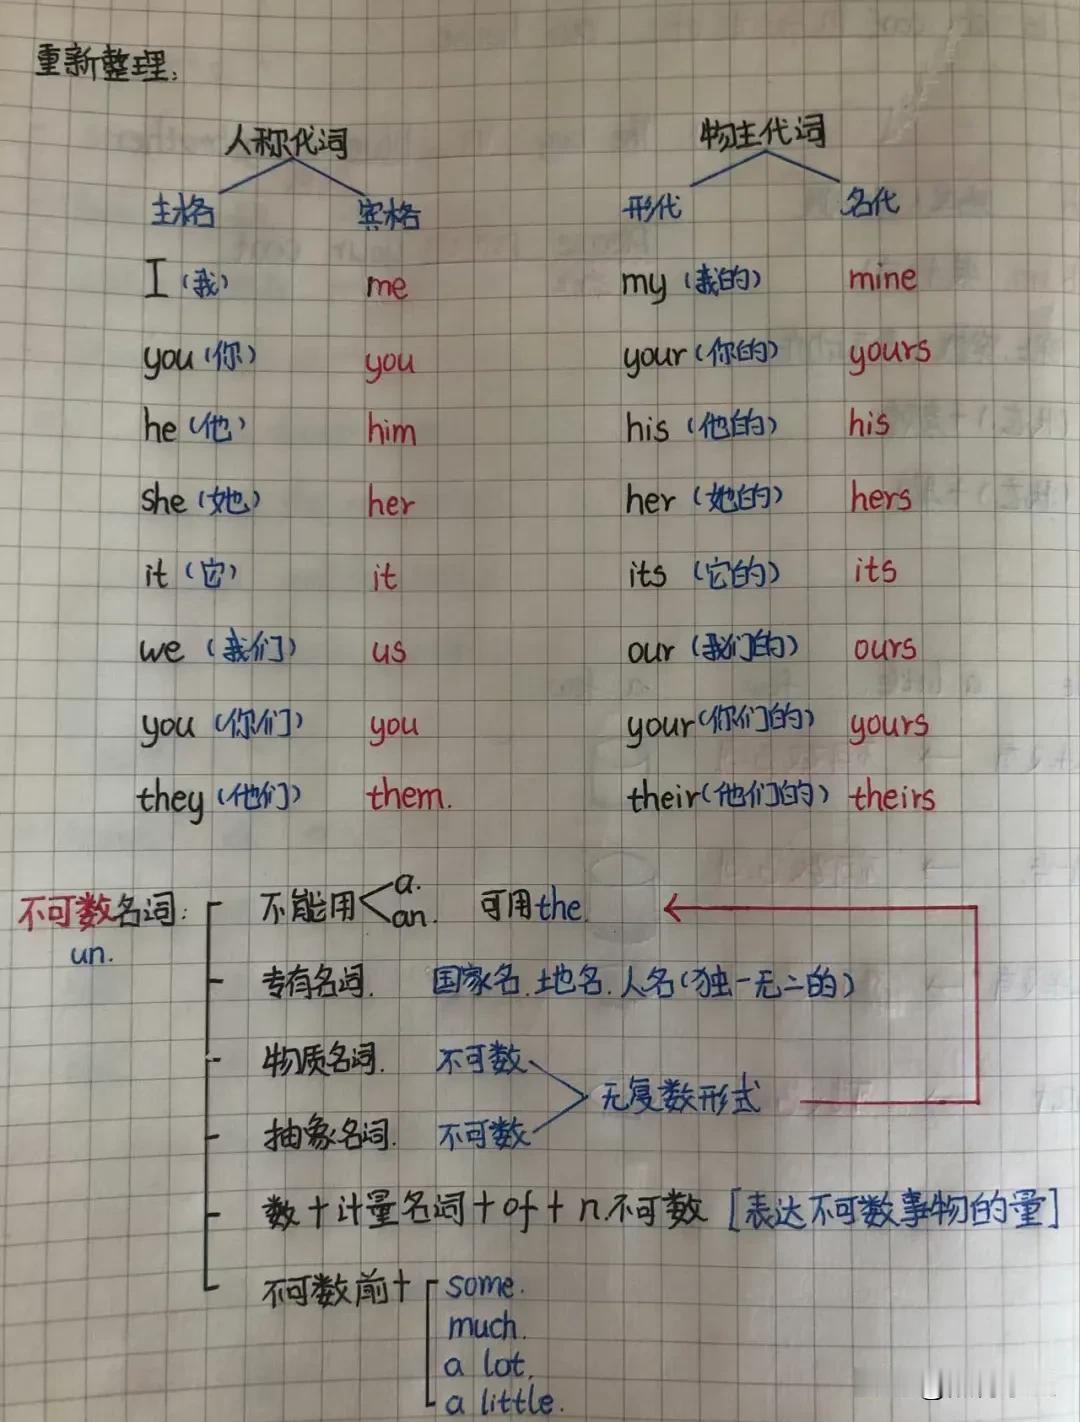 重新整理:
人称代词 物主代词
主格 宾格 形代 名代
I (我) me my (我的) mine
you (你) you your (你的) yours
he (他) him his (他的) his
she (她) her her (她的) hers
it (它) it its (它的) its
we (我们) us our (我们的) ours
you (你们) you your (你们的) yours
they (他们) them. their (他们的) theirs
不可数名词: 不能用 a. an. 可用the.
un.
专有名词. 国家名.土地名.人名(独一无二的)
物质名词. 不可数
无复数形式
抽象名词. 不可数
数+计量名词+of+n.不可数 [表达不可数事物的量]
不可数前+ some.
much.
a lot.
a little.